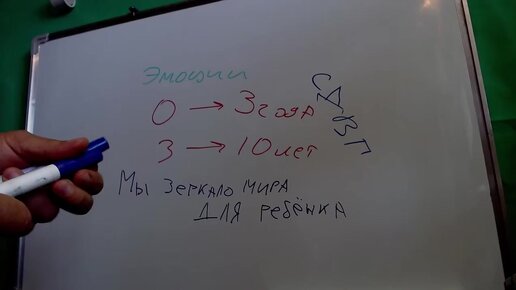 Эмоции
0 → 3 года
3 → 10 лет
СДВГ
Мы зеркало мира
для ребёнка